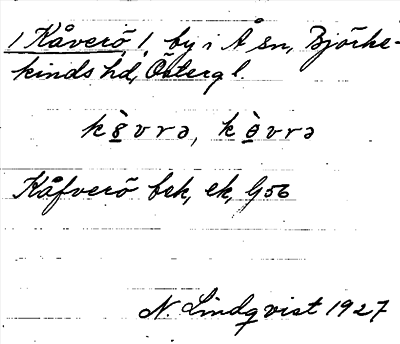 / Kåverö, /, by i Å sn, Björke-
kinds hd, Östergl.
kȣ̀vrə, kò̱vrə
Kåfverö bek, ek, G56
N. Lindqvist 1927